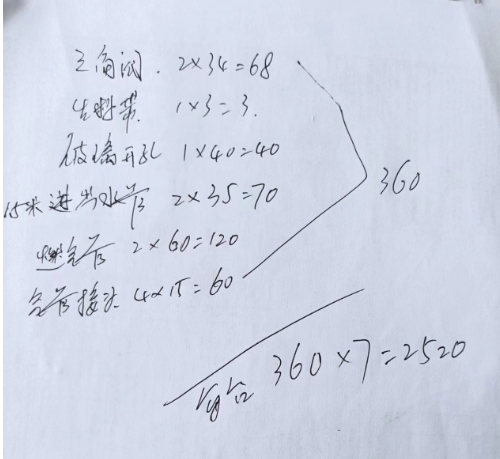 三角阀. 2×34=68
生料带. 1×3=3.
玻璃开孔 1×40=40
15米进出水管 2×35=70
燃气管 2×60=120
气管接头 4×15=60
360
360×7=2520